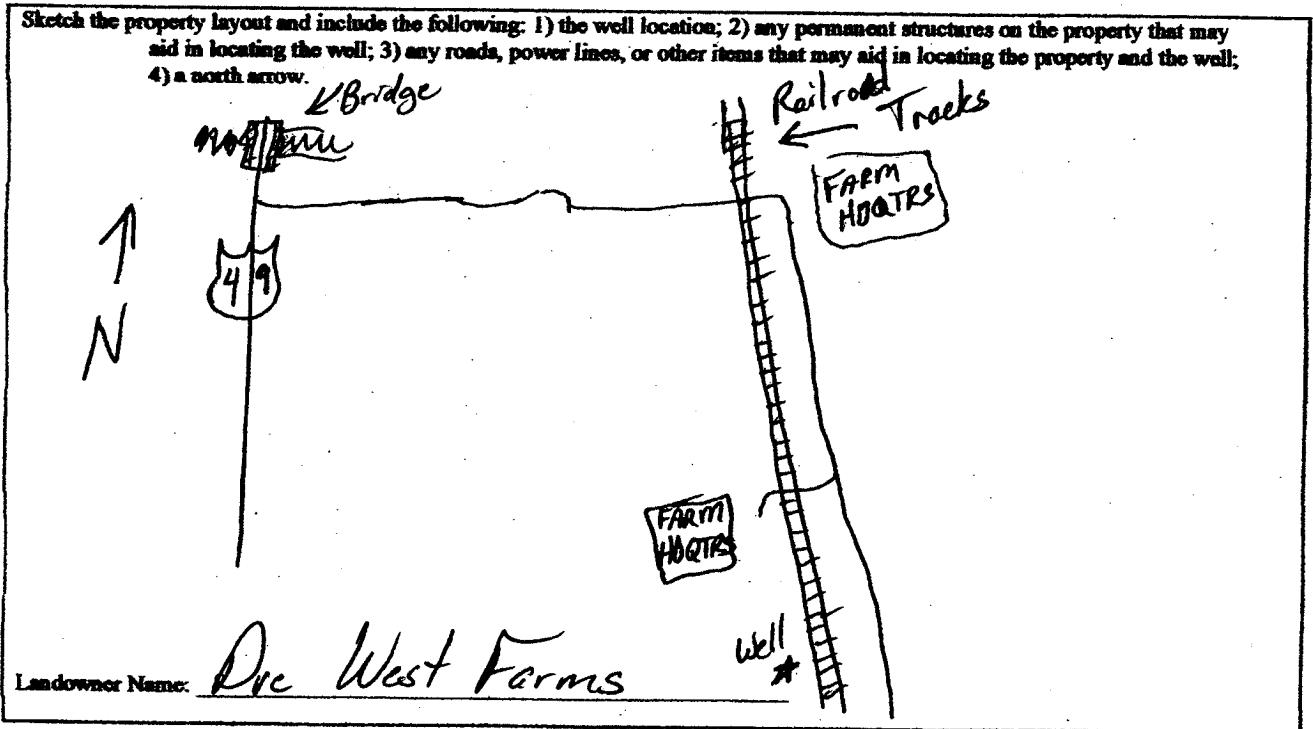 Sketch the property layout and include the following: 1) the well location; 2) any permanent structures on the property that may
aid in locating the well; 3) any roads, power lines, or other items that may aid in locating the property and the well;
4) a north arrow.
Bridge
Railroad
Tracks
FARM
HDQTRS
N
49
FARM
HDQTRS
Well
Landowner Name: West Farms